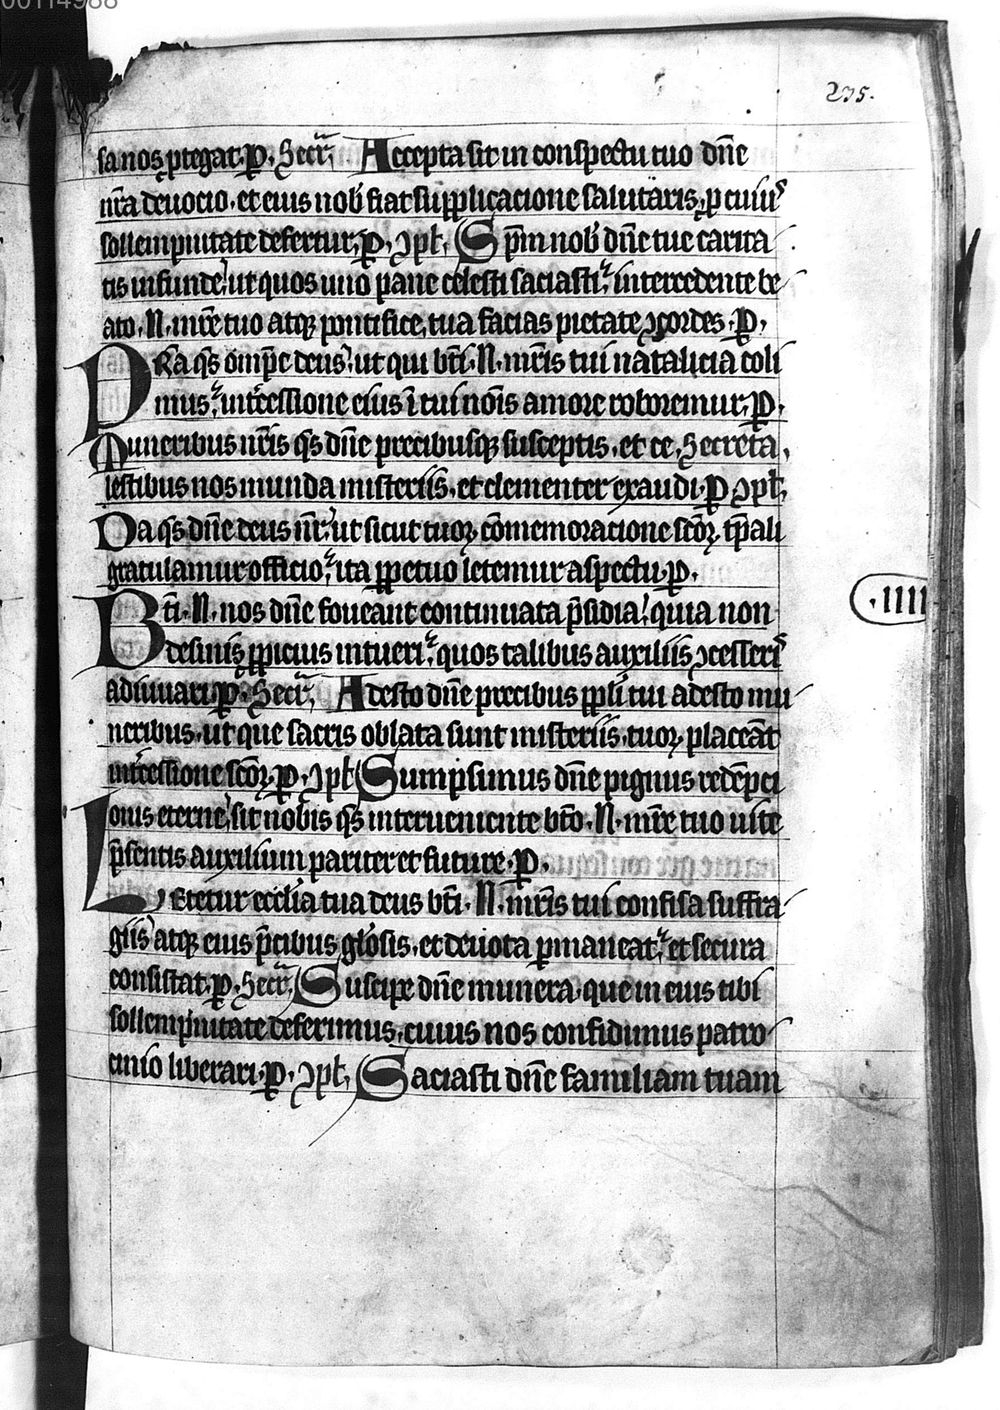 235.
sa nos ꝓtegat. ꝑ. Secr̃. Accepta sit in conspectu tuo dn̄e
nr̄a deuocio. et eius nob̄ fiat supplicacione salutaris. ꝑ cuiꝰ
sollempnitate defertur. ꝑ. ꝯpl̄. Sp̄m nob̄ dn̄e tue carita
tis infunde. ut quos uno pane celesti saciasti. intercedente be
ato. N. mr̄e tuo atqꝫ pontifice. tua facias pietate ꝯcordes. ꝑ.
PRa qs̄ omp̄e deus. ut qui bt̄i. N. mr̄is tui natalicia coli
mus. int̄cessione eius ī tui nōis amore roboremur. ꝑ.
Muneribus nr̄is qs̄ dn̄e precibusqꝫ susceptis. et ce. Secreta.
lestibus nos munda misteriis. et clementer exaudi. ꝑ ꝯpl̄.
Da qs̄ dn̄e deus nr̄. ut sicut tuoꝝ cōmemoracione sc̄oꝝ tp̄ali
gratulamur officio. ita ꝑpetuo letemur aspectu. ꝑ.
Bt̄i. N. nos dn̄e foueant continuata p̄sidia. quia non
desinis ꝓpicius intueri. quos talibus auxiliis ꝯcesseris
adiuuari. ꝑ. Secr̃. Adesto dn̄e precibus ppl̄i tui adesto mu
neribus. ut que sacris oblata sunt misteriis. tuoꝝ placeāt
int̄cessione sc̄oꝝ. ꝑ. ꝯpl̄ Sumpsimus dn̄e pignus redēpci
onis eterne. sit nobis qs̄ interueniente bt̄o. N. mr̄e tuo uite
p̄sentis auxilium pariter et future. ꝑ.
LEtetur eccl̄ia tua deus bt̄i. N. mr̄is tui confisa suffra
giis atqꝫ eius p̄cibus gl̄osis. et deuota ꝑmaneat. et secura
consistat. ꝑ. Secr̃. Suscipe dn̄e munera que in eius tibi
sollempnitate deferimus. cuius nos confidimus patro
cinio liberari. ꝑ. ꝯpl̄. Saciasti dn̄e familiam tuam
.IIII